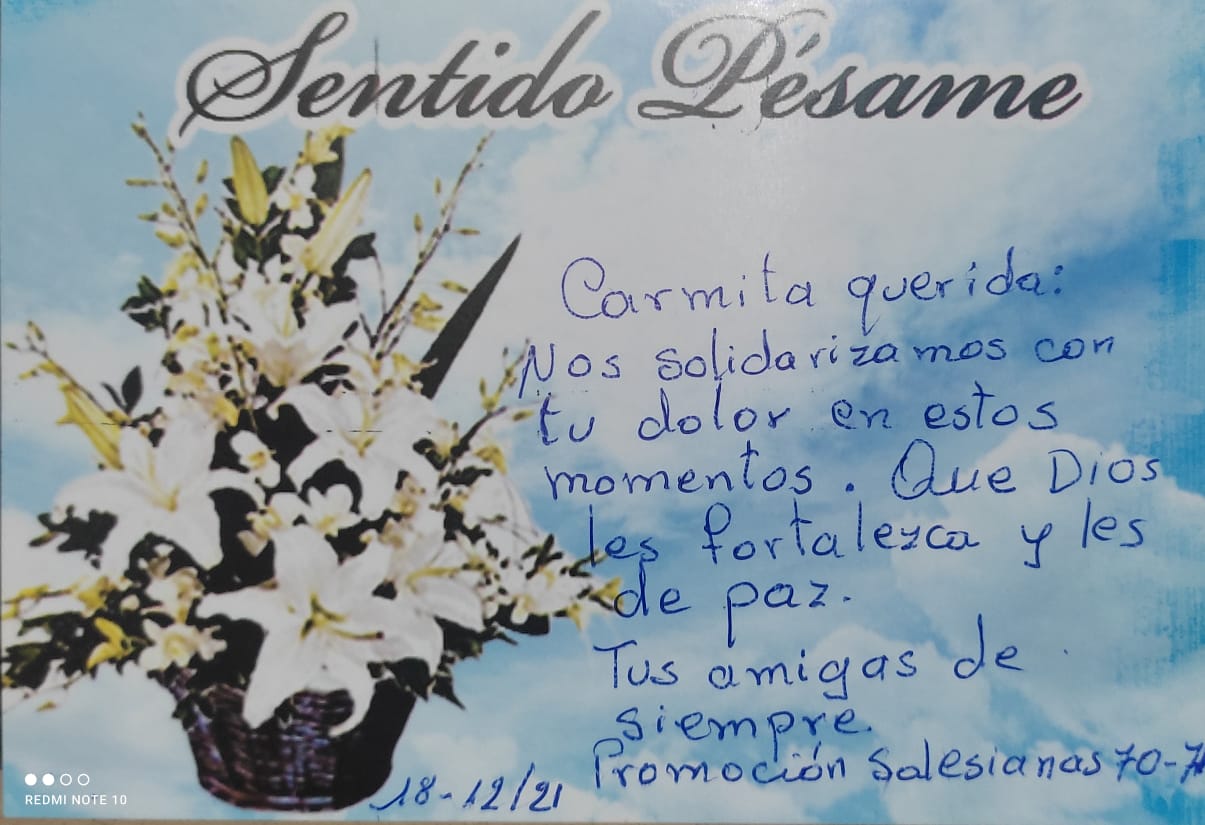 Sentido Pésame
Carmita querida:
Nos solidarizamos con
tu dolor en estos
momentos. Que Dios
les fortalezca y les
de paz.
Tus amigas de
siempre.
Promoción Salesianas 70-7
18-12/21
REDMI NOTE 10